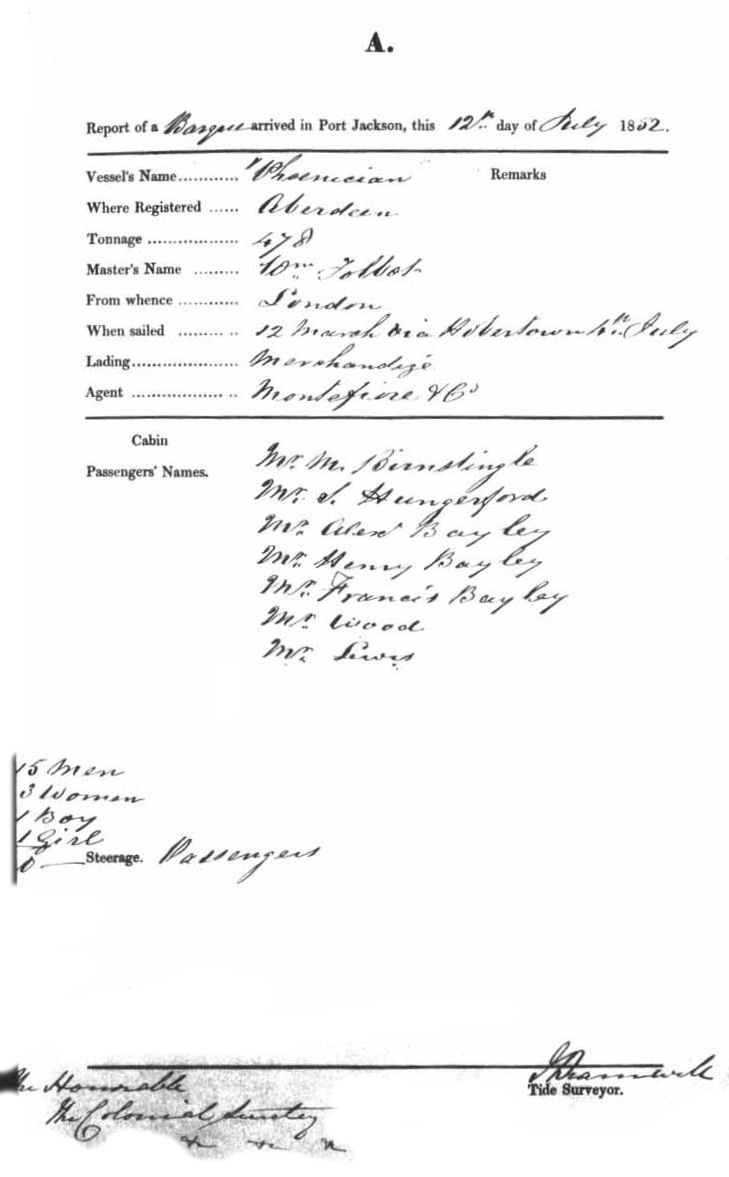 A.
Report of a Barque arrived in Port Jackson, this 12th day of July 1852.
Vessel's Name............ "Phoenician" Remarks
Where Registered ...... Aberdeen
Tonnage .................. 478
Master's Name ......... Wm Talbot
From whence ............ London
When sailed ......... .. 12 March via Hobertown 4th July
Lading..................... Merchandize
Agent .................. .. Montefiore & Co
Cabin
Passengers' Names.
Mr. M. Birnstingle
Mr. S. Hungerford
Mr. Alexr Bayley
Mr. Henry Bayley
Mr. Francis Bayley
Mr. Wood
Mr. Lewis
15 Men
3 Women
1 Boy
1 Girl
0 Steerage. Passengers
Tide Surveyor.
The Honorable
The Colonial